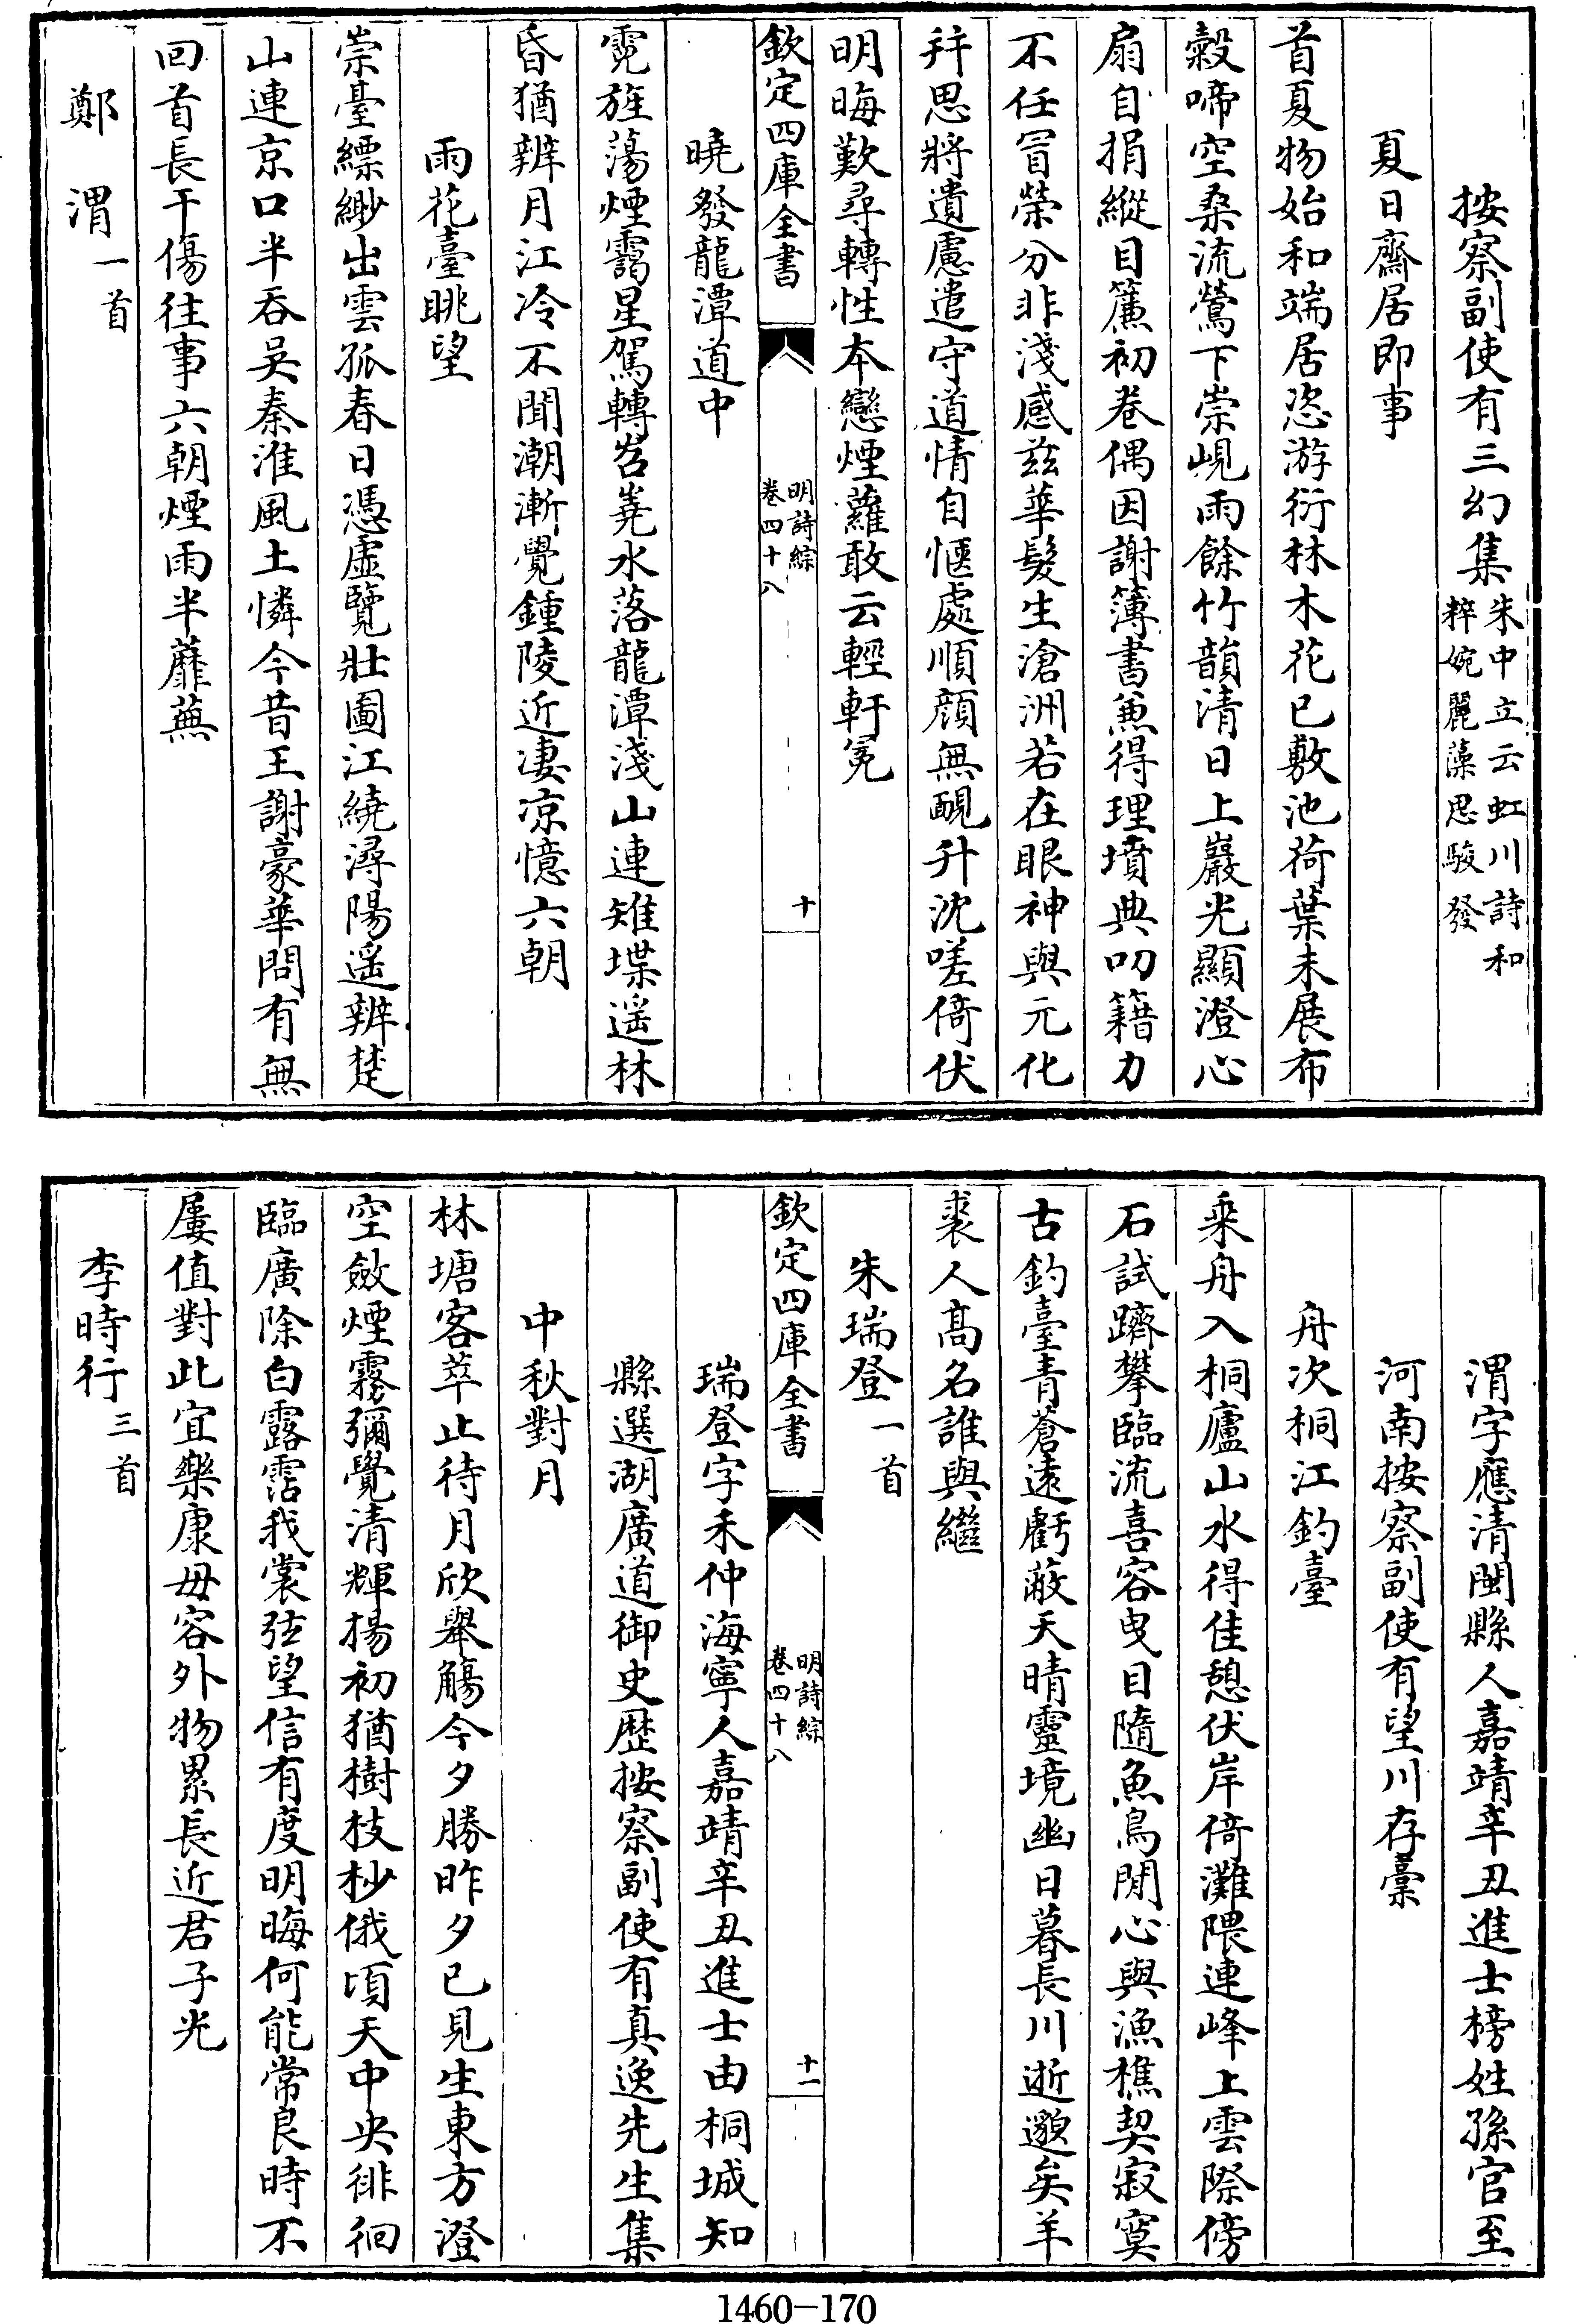 按察副使有三幻集朱中立云虹川詩和
粹婉麗藻思駿發
夏日齋居即事
首夏物始和端居恣游衍林木花已敷池荷葉未展布
穀啼空桑流鶯下崇峴雨餘竹韻清日上巖光顯澄心
扇自捐縱目簾初卷偶因謝簿書兼得理墳典叨籍力
不任冒榮分非淺感兹華髮生滄洲若在眼神與元化
并思將遺慮遣守道情自愜處順顔無靦升沈嗟倚伏
明晦歎尋轉性本戀煙蘿敢云輕軒冕
欽定四庫全書
明詩綜
卷四十八
十
曉發龍潭道中
霓旌蕩煙靄星駕轉岧嶤水落龍潭淺山連雉堞遥林
昏猶辨月江冷不聞潮漸覺鍾陵近凄凉憶六朝
雨花臺眺望
崇臺縹緲出雲孤春日憑虛覽壯圖江繞潯陽遥辨楚
山連京口半吞吴秦淮風土憐今昔王謝豪華問有無
回首長干傷往事六朝煙雨半蘼蕪
鄭渭一首
渭字應清閩縣人嘉靖辛丑進士榜姓孫官至
河南按察副使有望川存藁
舟次桐江釣臺
乘舟入桐廬山水得佳憩伏岸倚灘隈連峰上雲際傍
石試躋攀臨流喜容曳目隨魚鳥閒心與漁樵契寂寞
古釣臺青蒼遠虧蔽天晴靈境幽日暮長川逝邈矣羊
裘人高名誰與繼
朱瑞登一首
欽定四庫全書
明詩綜
卷四十八
十一
瑞登字禾仲海寧人嘉靖辛丑進士由桐城知
縣選湖廣道御史歷按察副使有真逸先生集
中秋對月
林塘客萃止待月欣舉觴今夕勝昨夕已見生東方澄
空斂煙霧彌覺清輝揚初猶樹枝杪俄頃天中央徘徊
臨廣除白露霑我裳弦望信有度明晦何能常良時不
屢值對此宜樂康毋容外物累長近君子光
李時行三首
1460-170